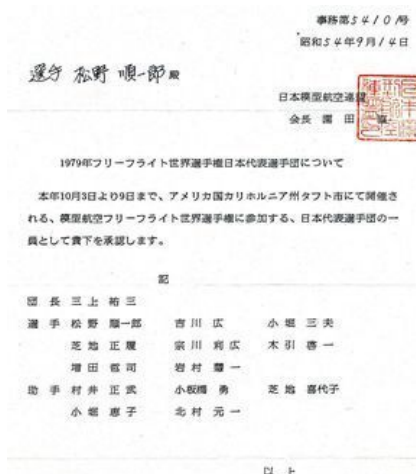 事務第5410号
昭和54年9月14日
選手 松野 順一郎 殿
日本模型航空連盟
会長
1979年フリーフライト世界選手権日本代表選手団について
本年10月3日より9日まで、アメリカ国カリホルニア州タフト市にて開催さ
れる、模型航空フリーフライト世界選手権に参加する、日本代表選手団の一
員として貴下を承認します。
記
団 長 三上 祐三
選 手 松野 順一郎 吉川 広 小堀 三夫
芝地 正履 宗川 利広 木引 啓一
増田 哲司 岩村 一
助 手 村井 正武 小板橋 勇 芝地 喜代子
小堀 恵子 北村 元一
以 上